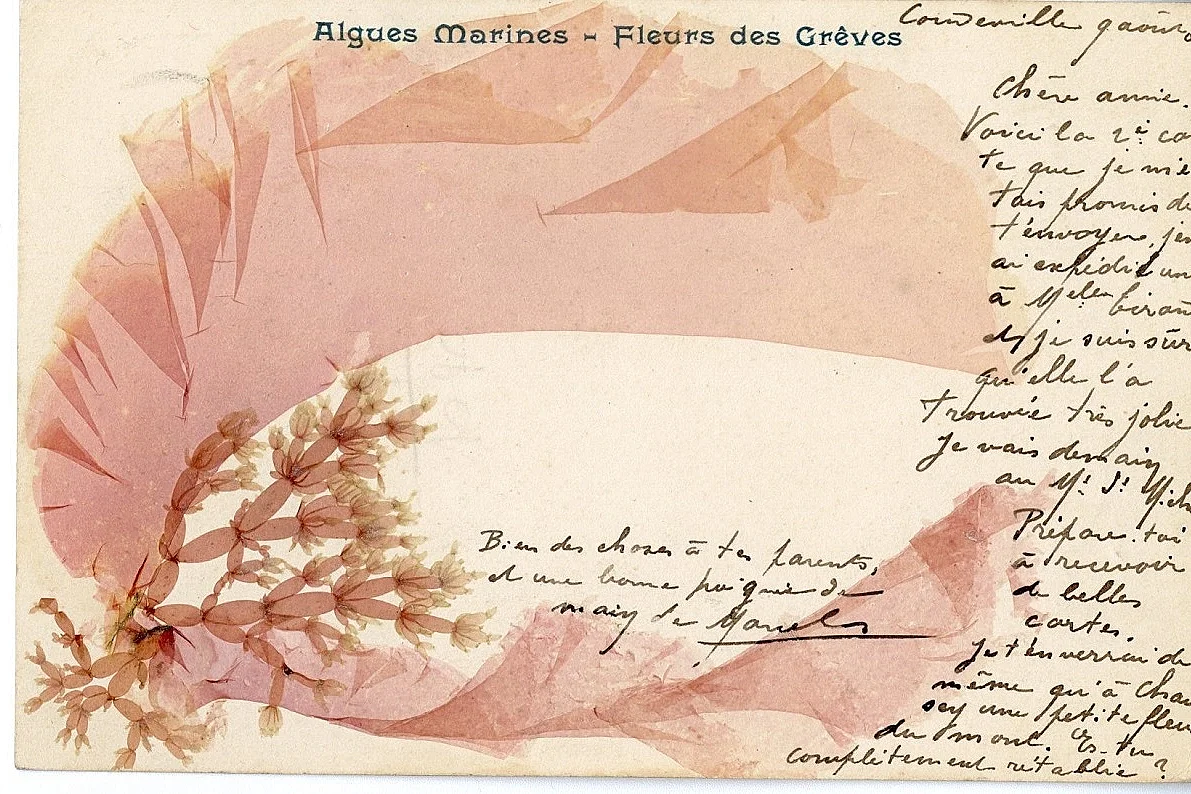 Algues Marines - Fleurs des Grêves
9 août
Chère amie.
Voici la 2e car
te que je m'é
tais promis de
t'envoyer, j'en
ai expédié un
à Melle
et je suis sûr
qu'elle l'a
trouvée très jolie
Je vais demain
au Mt St Mich
Prépare-toi
à recevoir
de belles
cartes.
Je t'enverrai de
même qu'à
une petite fleur
du mont. Es-tu
complètement rétablie ?
Bien des choses à tes parents,
et une bonne poignée de
main de